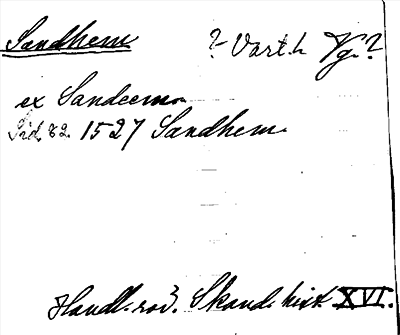 Sandhem ? Vart h Vg. ?
ex Sandeem
Sid. 82 1527 Sandhem
Handl. rör. Skand. hist. XVI.